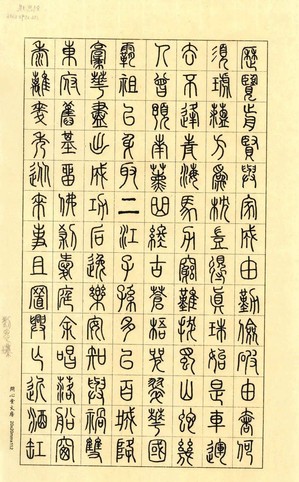 歷覽前賢與家成由勤儉破由奢何
須琥珀方為枕豈得真珠始是車運
去不逢青海馬力窮難拔蜀山蛇幾
人曾預南薰曲終古蒼梧哭翠華國
霸祖以身取二江子孫多以百城降
豪華盡出成功后逸樂安知與禍雙
東府舊基留佛剎後庭余唱落船窗
黍離麥秀從來事且置興亡近酒缸